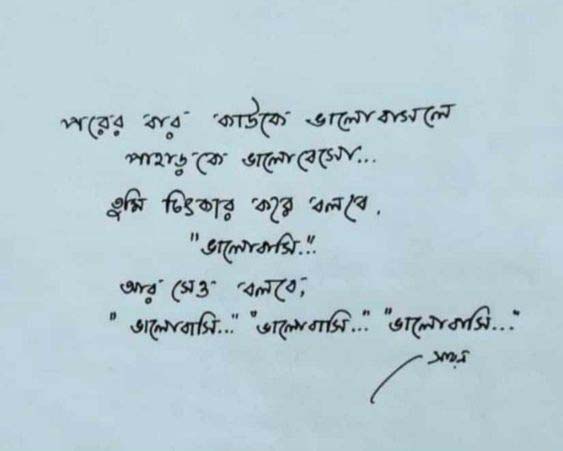 পরের বার কাউকে ভালোবাসলে
পাহাড়কে ভালোবেসো...
তুমি চিৎকার করে বলবে,
"ভালোবাসি..."
আর সেও বলবে,
"ভালোবাসি..." "ভালোবাসি..." "ভালোবাসি..."